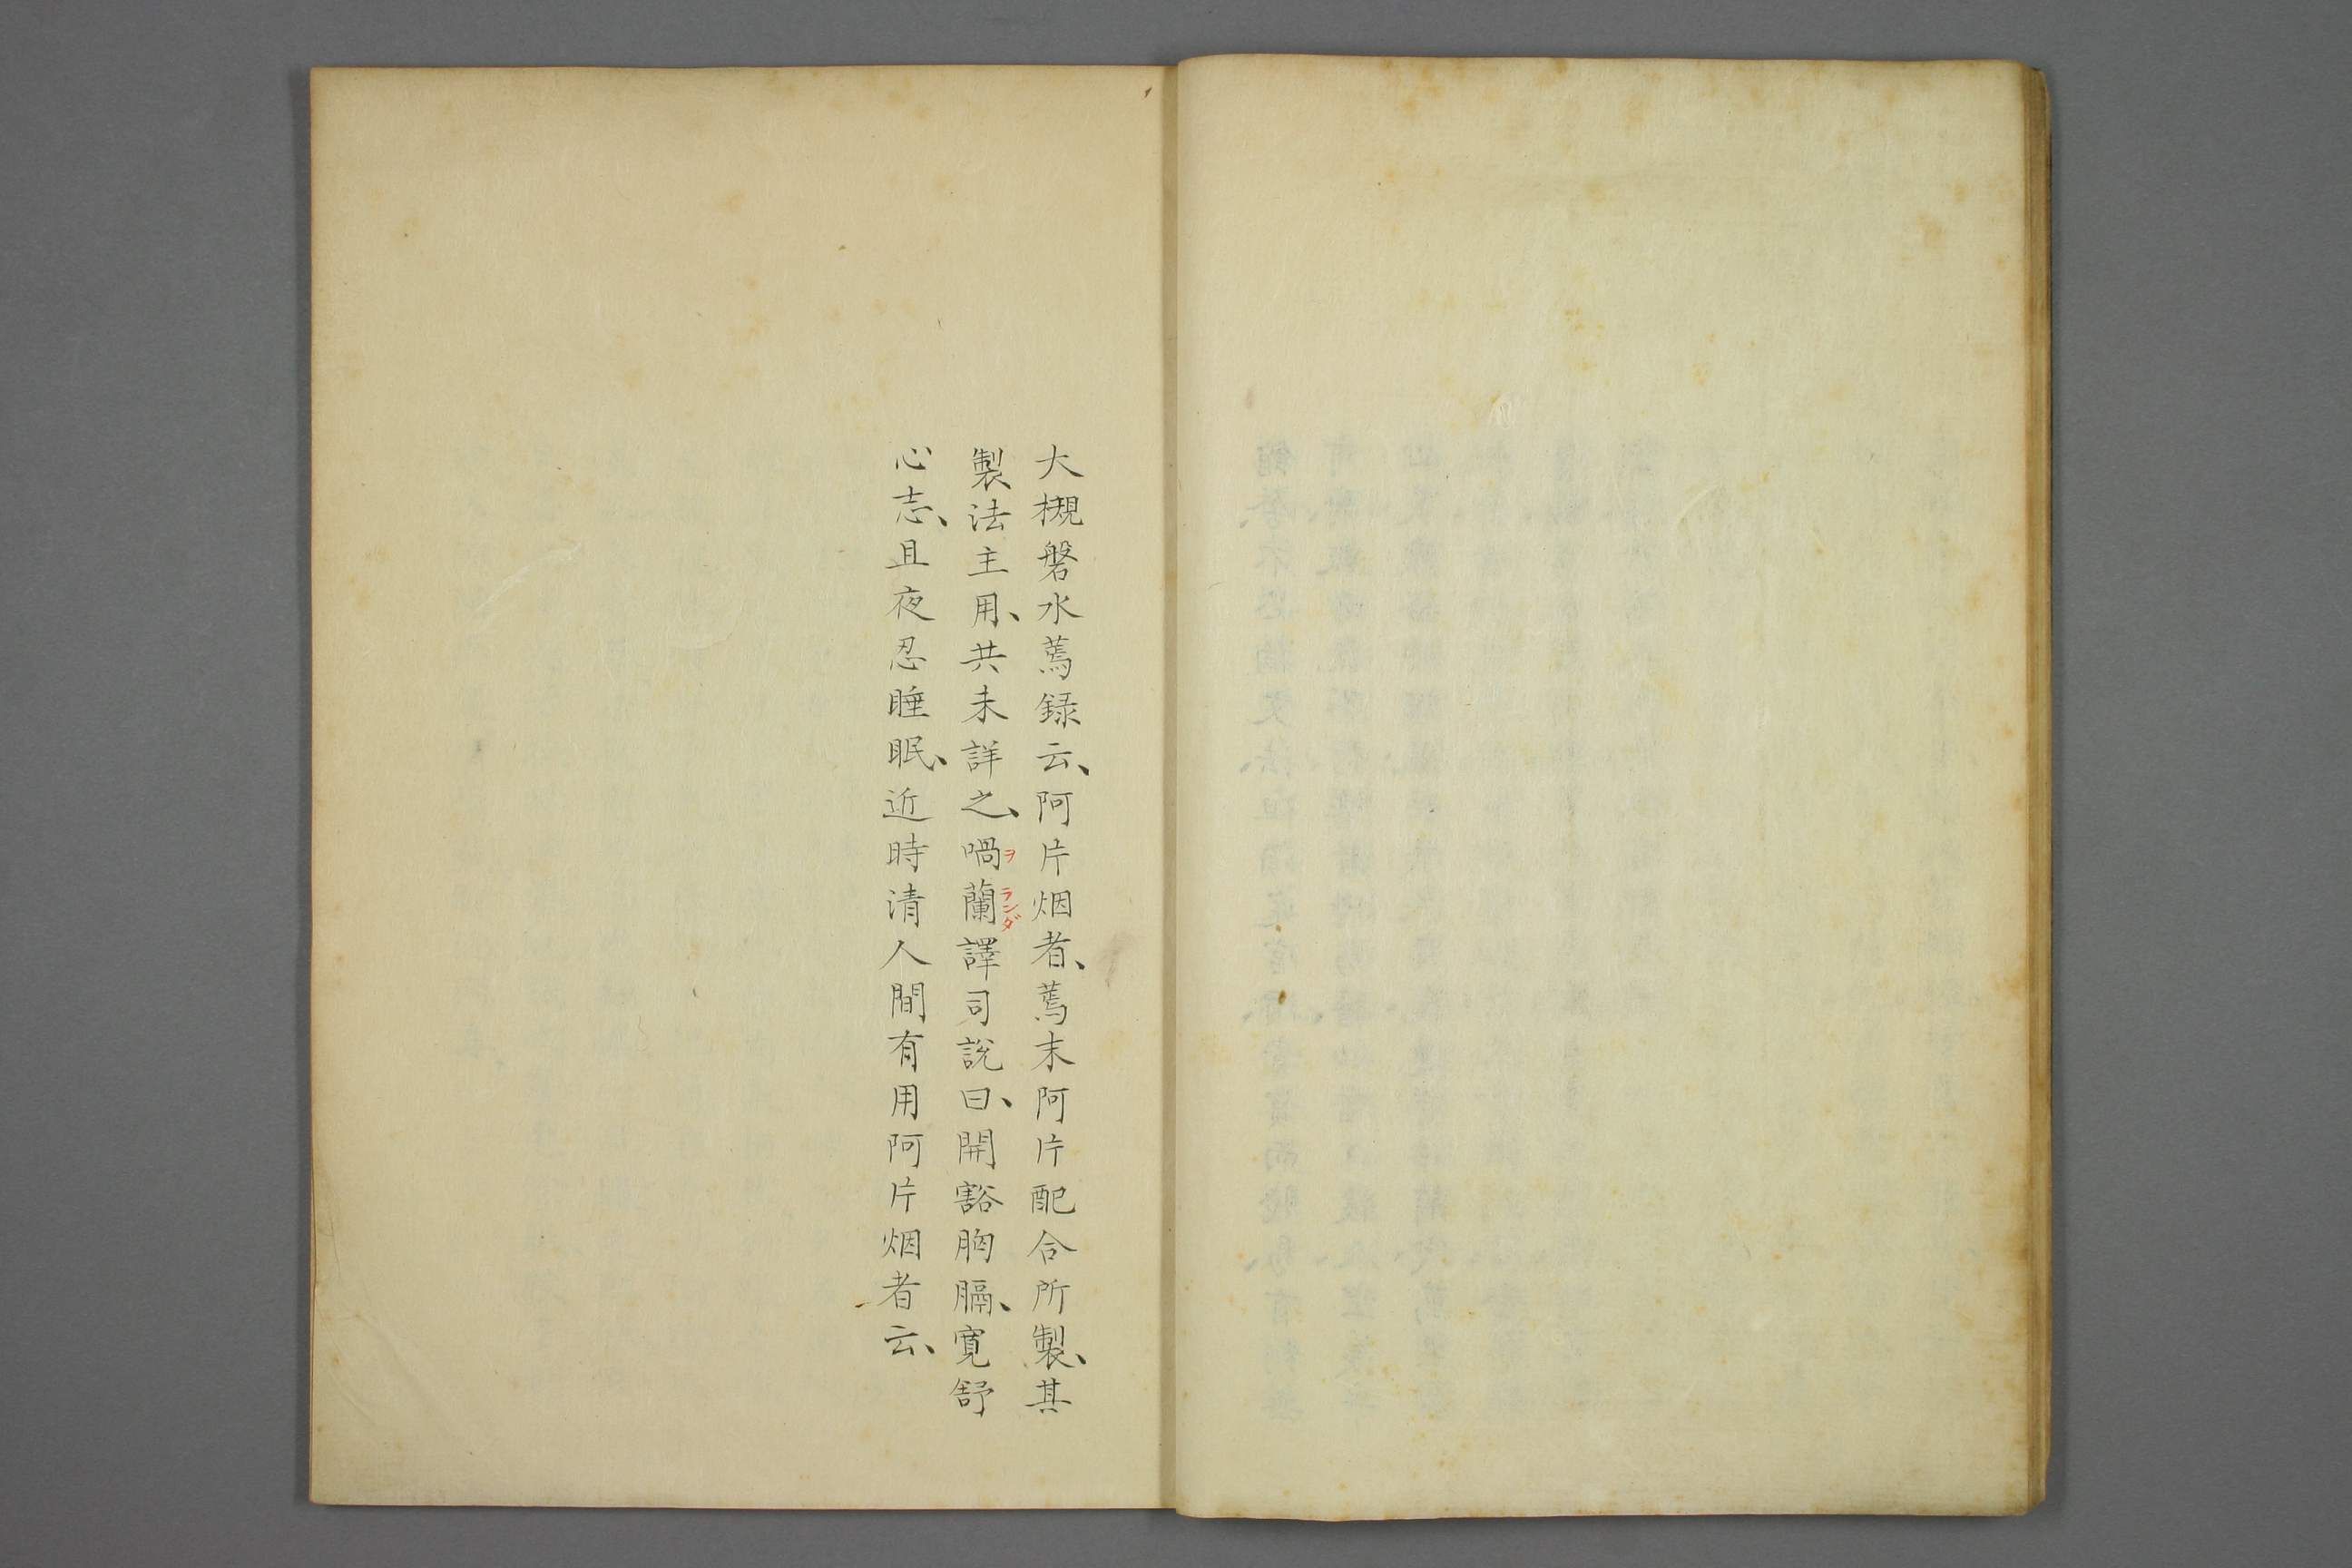 大槻磐水蔫録云、阿片烟者、蔫末阿片配合所製、其
製法主用、共未詳之、喎蘭譯司說曰、開豁胸膈、寛舒
ヲランダ
心志、且夜忍睡眠、近時清人間有用阿片烟者云、